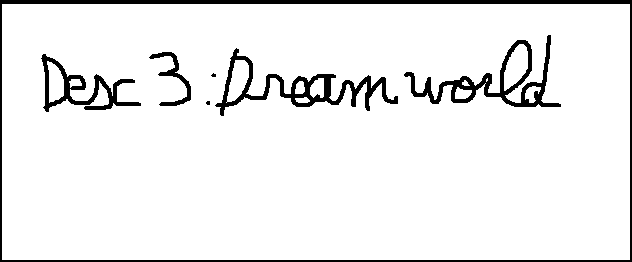 Desc 3 : Dream world